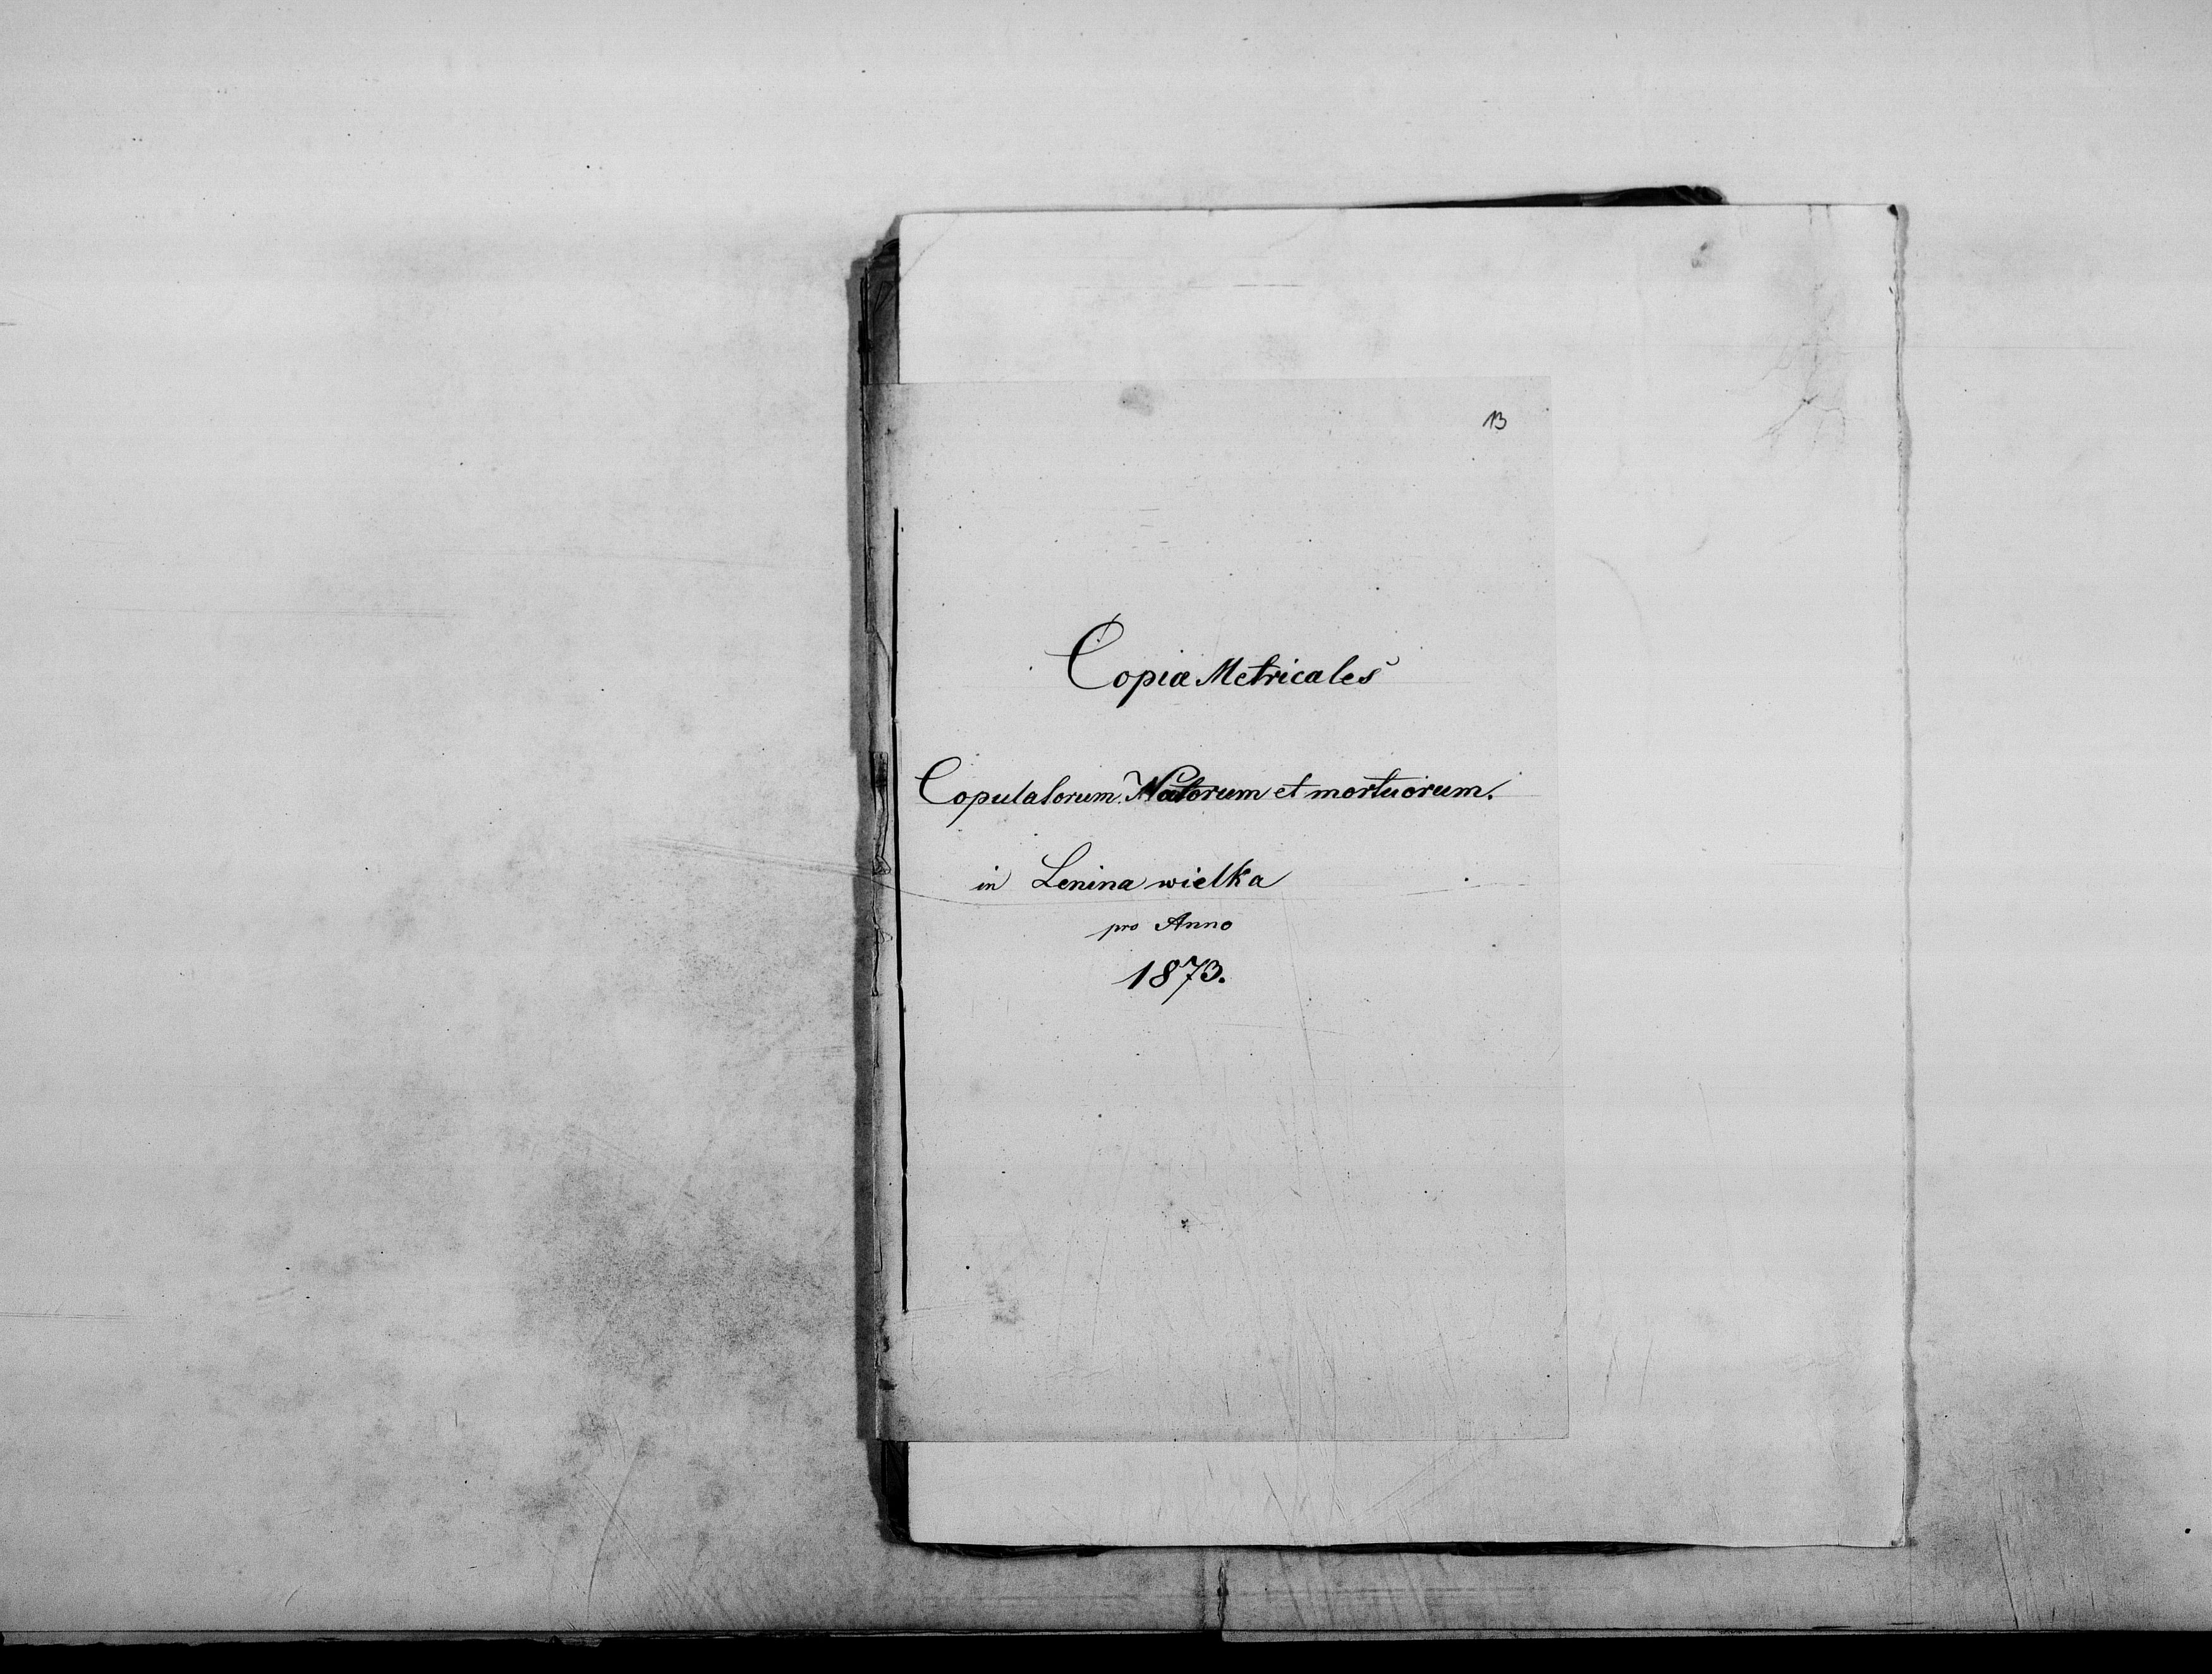 13
Copiæ Metricales
Copulatorum, Natorum et mortuorum.
in Lenina wielka
pro Anno
1873.